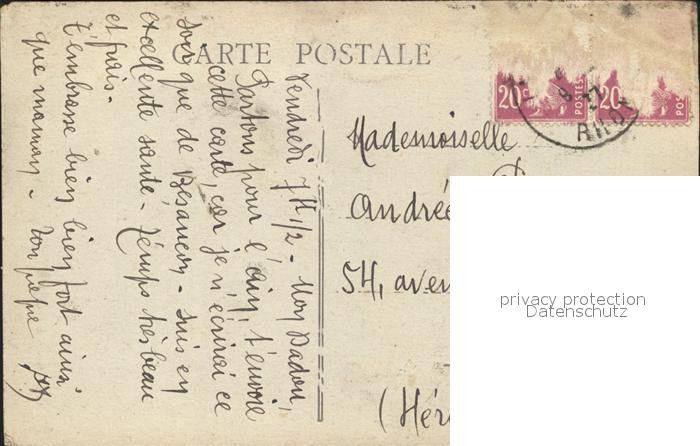 CARTE POSTALE
Vendredi 7H 1/2 - Mon Dadou,
Partons pour l'ain, t'envoie
cette carte, car je n'écrirai ce
soir que de Besançon - Suis en
excellente santé - Temps très beau
et frais.
T'embrasse bien bien fort ainsi
que maman - Ton pépé
20c POSTES
20c POS
RHO
Mademoiselle
Andrée
54, aven
(Hér
privacy protection
Datenschutz